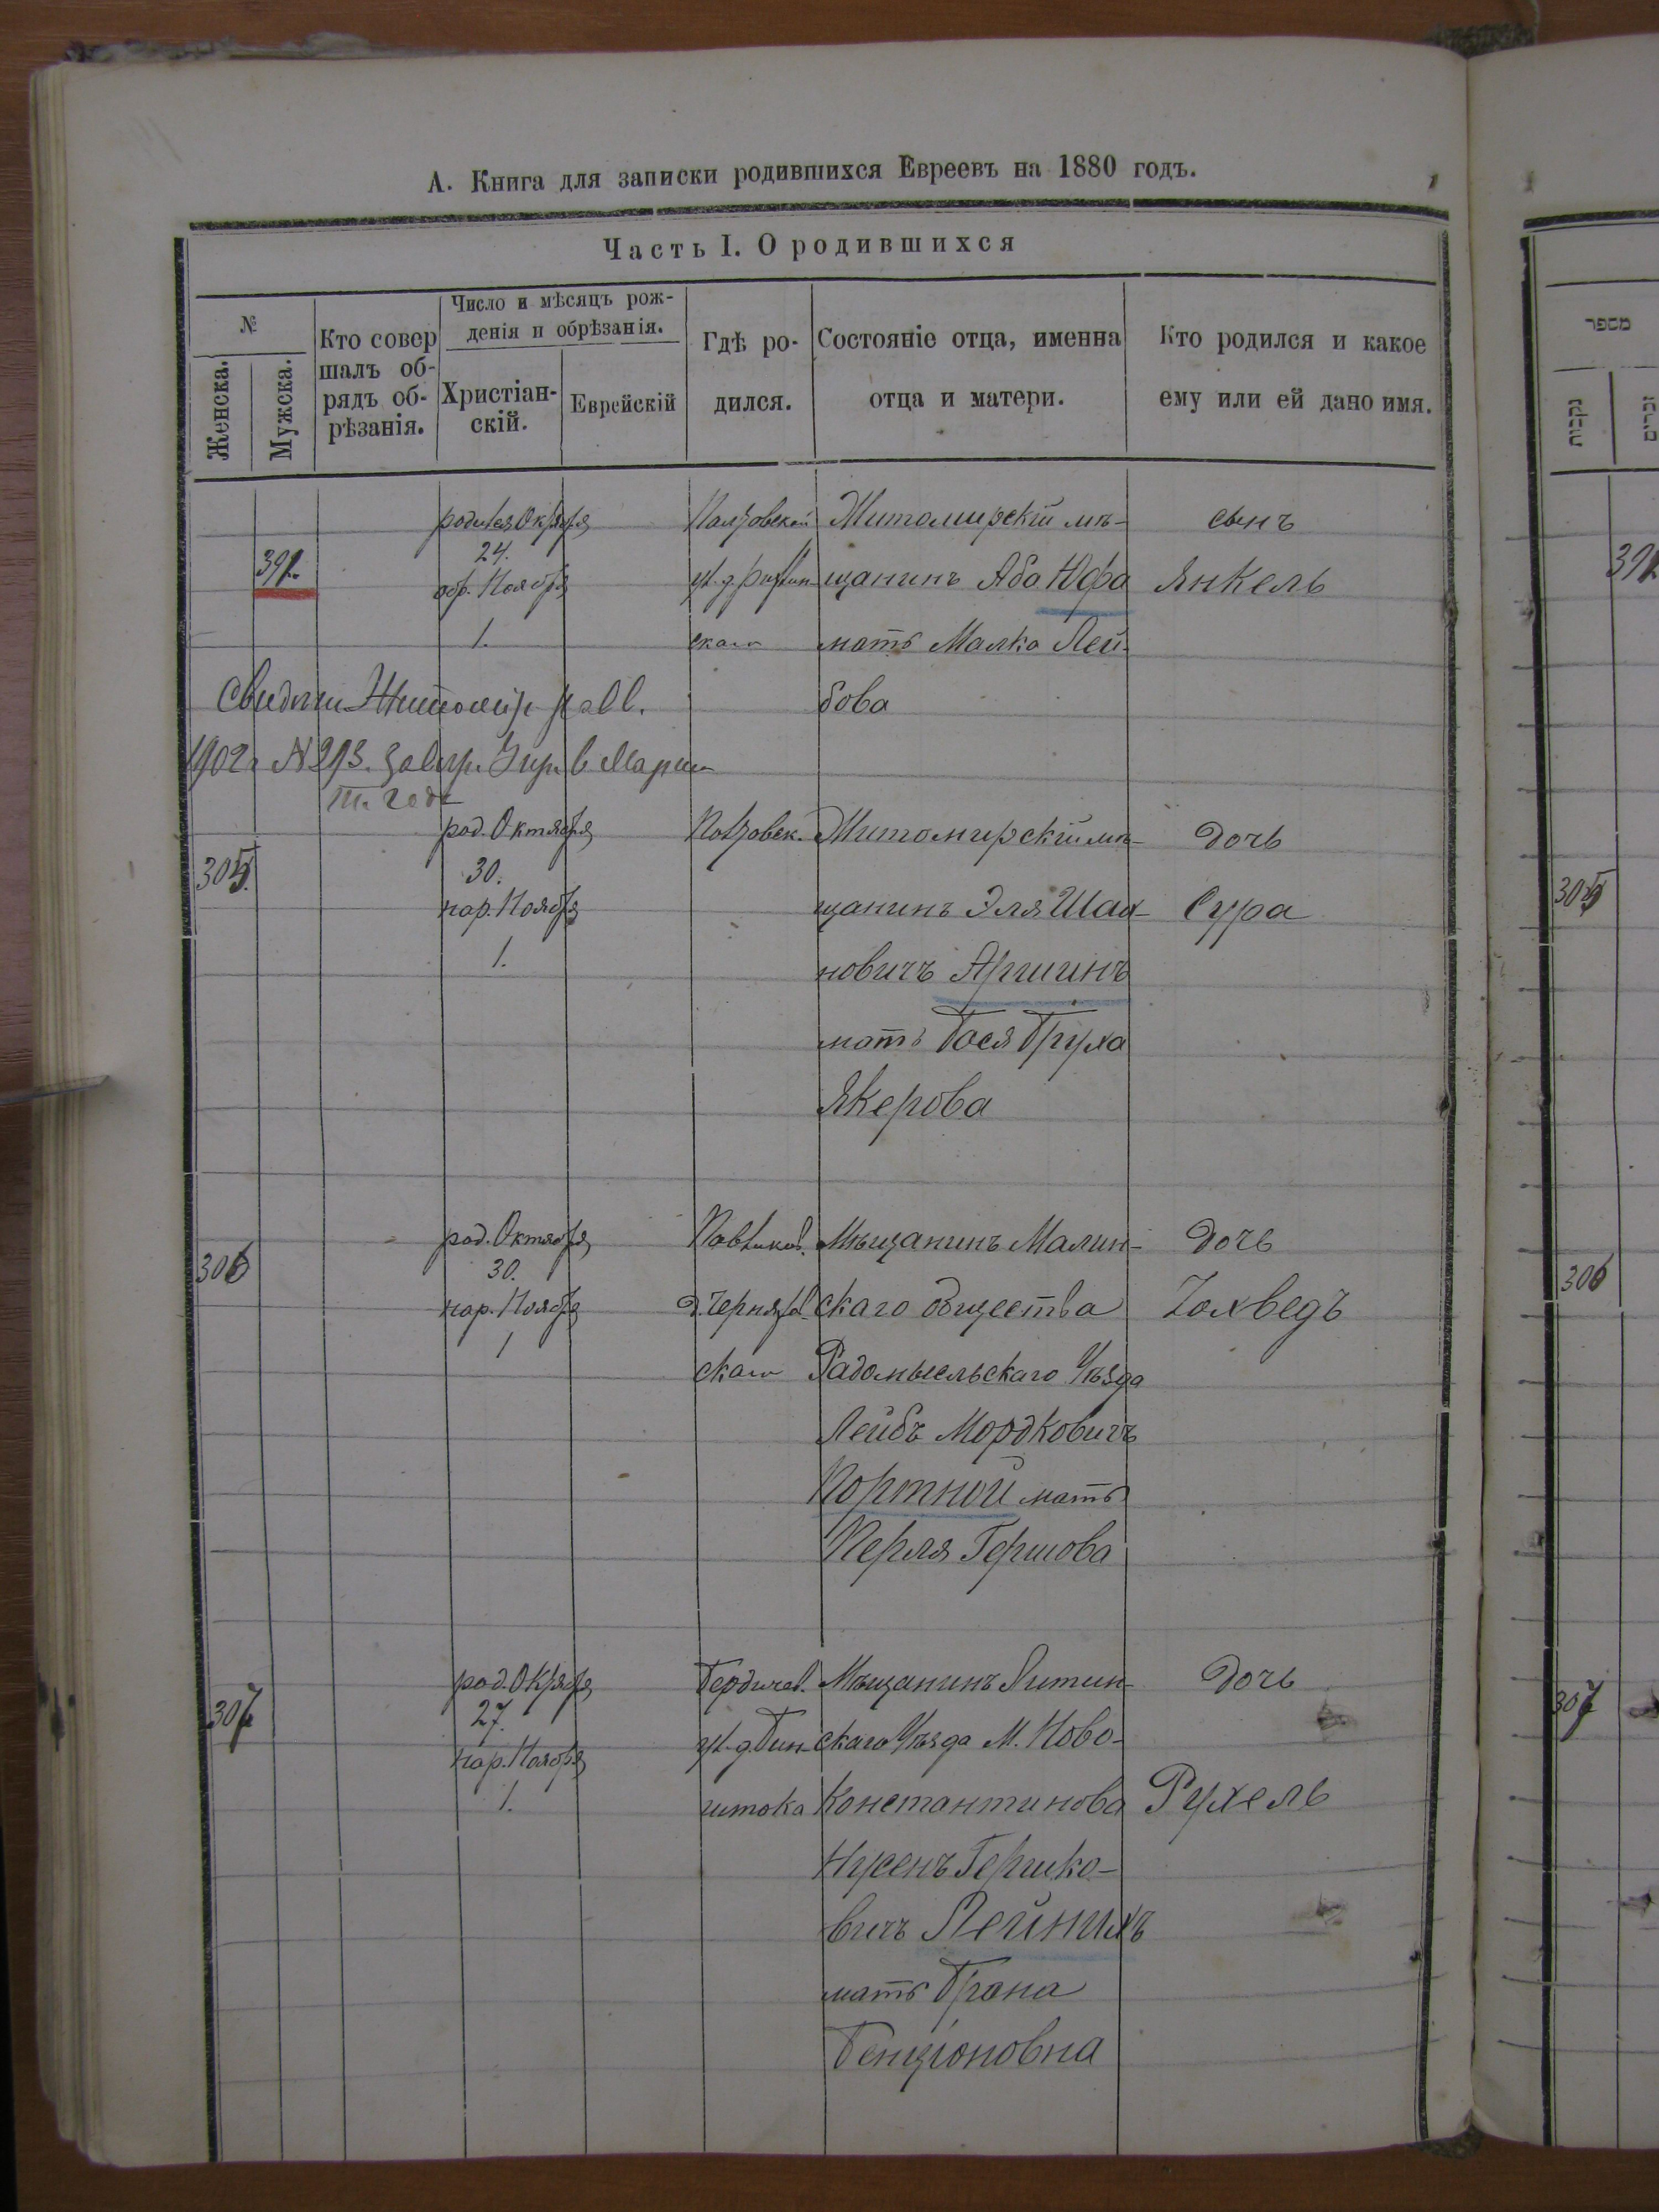 А. Книга для записки родившихся Евреевъ на 1880 годъ.
Часть I. О родившихся
№
Женска.
Мужска.
Кто совер
шалъ об-
рядъ об-
рѣзанія.
Число и мѣсяцъ рож-
денія и обрѣзанія.
Христіан-
скій.
Еврейскій
Гдѣ ро-
дился.
Состояніе отца, именна
отца и матери.
Кто родился и какое
ему или ей дано имя.
מספר
נקבות
זכרים
391.
24.
обр. Ноября
1.
скаго
Житомирскій мѣ-
щанинъ Аба Юфа
мать Малка Лей-
бова
сынъ
Янкель
1902 г. №293.
305.
род. Октября
30.
нар. Ноября
1.
Житомирскій мѣ-
щанинъ Эля Шая-
новичъ Аршинъ
мать Бася Бруха
Якерова
дочь
Сура
306
род. Октября
30.
нар. Ноября
1
скаго
Мѣщанинъ Малин-
скаго общества
Радомысльскаго Уѣзда
Лейбъ Мордковичъ
Портной мать
Перля Гершова
дочь
307
27.
нар. Ноября
1.
Бердичев.
штока
Мѣщанинъ Литин-
скаго Уѣзда М. Ново-
Константинова
Нусенъ Гершко-
вичъ
мать Брана
Бенціоновна
дочь
Рухель
391
305
306
307